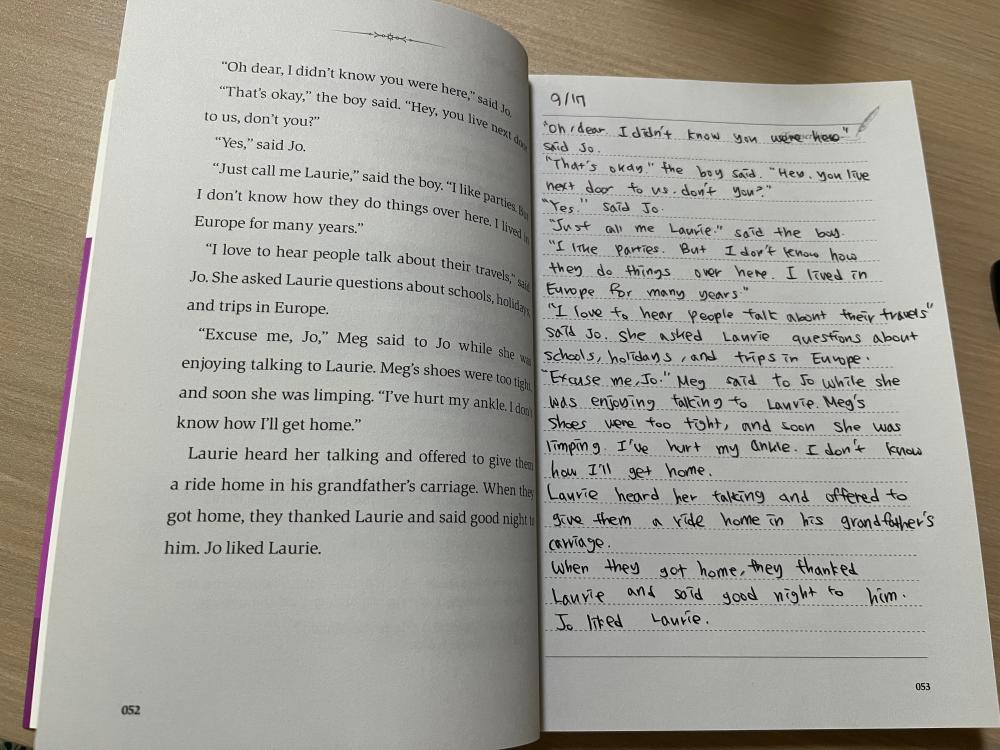 “Oh dear, I didn’t know you were here,” said Jo.
“That’s okay,” the boy said. “Hey, you live next door
to us, don’t you?”
“Yes,” said Jo.
“Just call me Laurie,” said the boy. “I like parties. But
I don’t know how they do things over here. I lived in
Europe for many years.”
“I love to hear people talk about their travels,” said
Jo. She asked Laurie questions about schools, holidays,
and trips in Europe.
“Excuse me, Jo,” Meg said to Jo while she was
enjoying talking to Laurie. Meg’s shoes were too tight,
and soon she was limping. “I’ve hurt my ankle. I don’t
know how I’ll get home.”
Laurie heard her talking and offered to give them
a ride home in his grandfather’s carriage. When they
got home, they thanked Laurie and said good night to
him. Jo liked Laurie.
052
9/17
"Oh, dear I didn't know you were here"
said Jo.
"That's okay." the boy said. "Hey. you live
next door to us. don't you?"
"Yes." said Jo.
"Just call me Laurie." said the boy.
"I like parties. But I don't know how
they do things over here. I lived in
Europe for many years"
"I love to hear people talk about their travels"
said Jo. She asked Laurie questions about
schools, holidays, and trips in Europe.
"Excuse me, Jo." Meg said to Jo while she
was enjoying talking to Laurie. Meg's
shoes were too tight, and soon she was
limping. I've hurt my ankle. I don't know
how I'll get home.
Laurie heard her talking and offered to
give them a ride home in his grandfather's
carriage.
When they got home, they thanked
Laurie and said good night to him.
Jo liked Laurie.
053